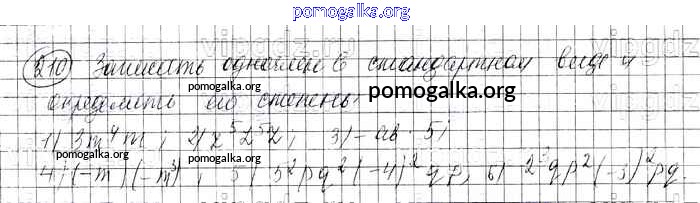 pomogalka.org
210) Записать одночлен в стандартном виде и
определить его степень:
pomogalka.org pomogalka.org
1) 3m⁴m; 2) z⁵z⁵z; 3) -ab·5;
pomogalka.org
4) (-m)(-m³); 5) 5²pq²(-4)²qp; 6) 2³qp²(-3)²pq.
pomogalka.org